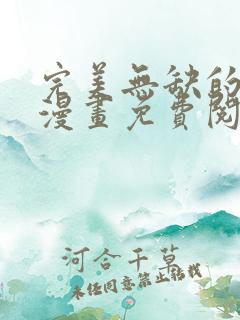 完美無缺的
漫畫免費閱
河合千草
未经同意禁止转载